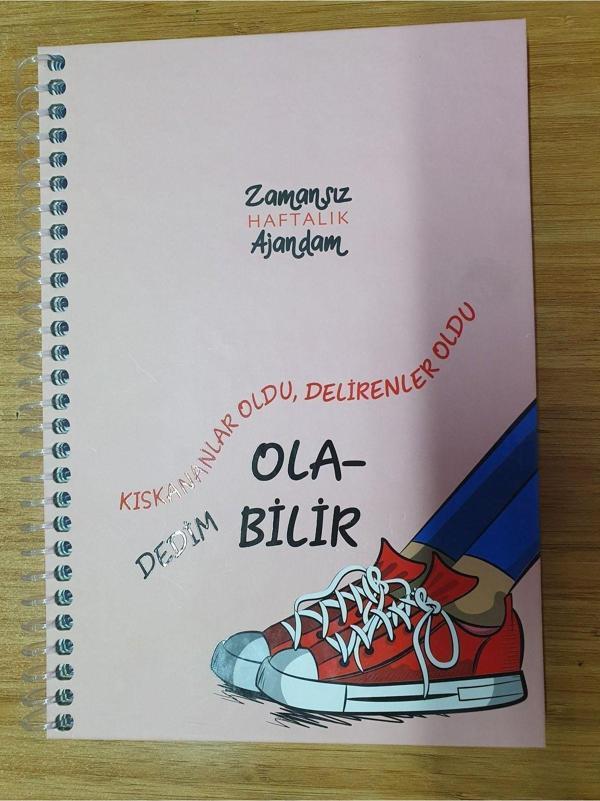 Zamansız
HAFTALIK
Ajandam
KISKANANLAR OLDU, DELİRENLER OLDU
DEDİM
OLA-
BİLİR